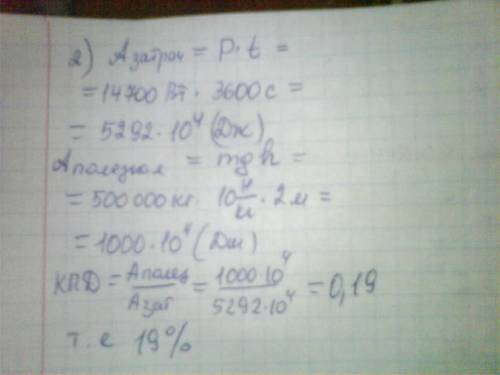 2) Aзатрач = P·t =
= 14700 Вт · 3600 с =
= 5292·10⁴ (Дж)
Aполезная = mgh =
= 500 000 кг · 10 Н/кг · 2 м =
= 1000·10⁴ (Дж)
КПД = Aполез/Aзат = 1000·10⁴/5292·10⁴ = 0,19
т.е 19%